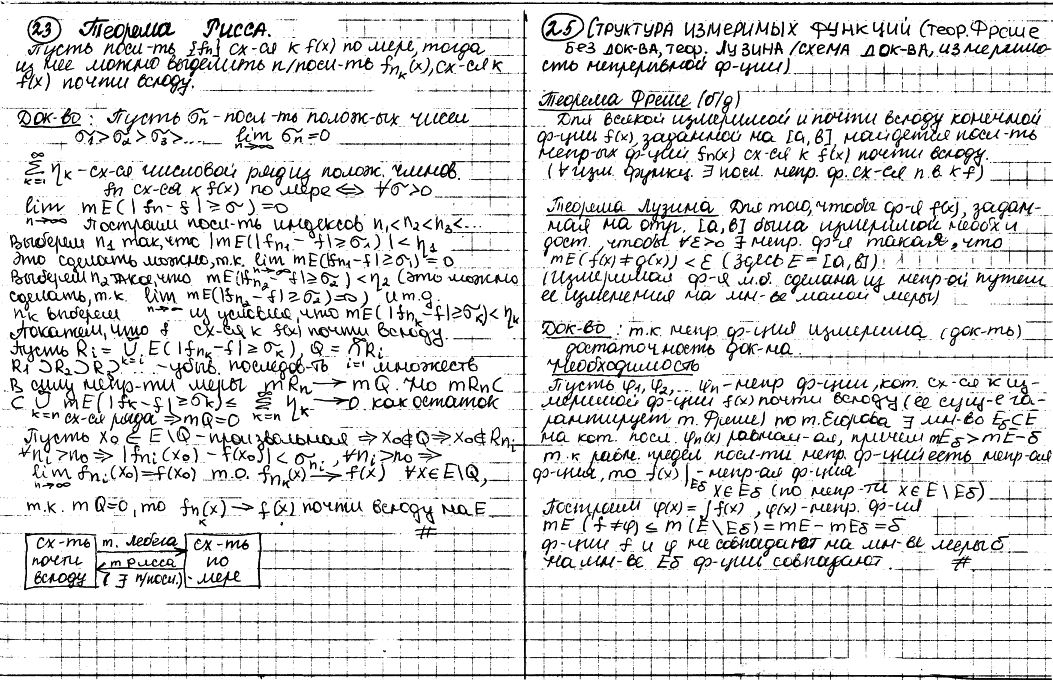 23 Теорема Рисса.
Пусть посл-ть {fn} сх-ся к f(x) по мере, тогда
из нее можно выделить п/посл-ть f_{n_k}(x), сх-ся к
f(x) почти всюду.
Док-во: Пусть σn - посл-ть полож-ых чисел
σ1>σ2>σ3>... lim_{n→∞} σn=0
∑_{k=1}^{∞} ηk - сх-ся числовой ряд из полож. членов.
fn сх-ся к f(x) по мере ⇔ ∀σ>0
lim_{n→∞} mE(|fn-f|≥σ)=0
Построим посл-ть индексов n1<n2<n3<...
Выберем n1 так, что |mE(|f_{n1}-f|≥σ1)|<η1
Это сделать можно, т.к. lim_{n→∞} mE(|fn1-f|≥σ1)=0
Выберем n2 такое, что mE(|f_{n2}-f|≥σ2)<η2 (это можно
сделать, т.к. lim_{n→∞} mE(|f_{n2}-f|≥σ2)=0) и т.д.
nk выберем из условия, что mE(|f_{nk}-f|≥σk)<ηk
Докажем, что f сх-ся к f(x) почти всюду
Пусть Ri = ∪_{k=i}^{∞} E(|f_{nk}-f|≥σk), Q=∩_{i=1}^{∞} Ri
R1⊃R2⊃R3⊃... - убыв. последов-ть множеств
В силу непр-ти меры mRn → mQ. Но mRn⊂
⊂ ∪_{k=n}^{∞} mE(|fk-f|≥σk)≤ ∑_{k=n}^{∞} ηk → 0 как остаток
сх-ся ряда ⇒ mQ=0
Пусть x0∈E\Q - произвольная ⇒ x0∉Q ⇒ x0∉R_{ni}
∀ni>n0 ⇒ |f_{ni}(x0)-f(x0)|<σ_{ni}, ∀ni>n0 ⇒
lim_{n→∞} f_{ni}(x0)=f(x0) т.о. f_{nk}(x)→f(x) ∀x∈E\Q,
т.к. mQ=0, то f_{nk}(x)→f(x) почти всюду на E
#
сх-ть почти всюду
т. Лебега
т. Рисса
(∃ п/посл.)
сх-ть по мере
25 Структура измеримых функций (теор. Фреше
без док-ва, теор. Лузина /схема док-ва, измеримо-
сть непрерывной ф-ции)
Теорема Фреше (б/д)
Для всякой измеримой и почти всюду конечной
ф-ции f(x), заданной на [a,b] найдется посл-ть
непр-ых ф-ций fn(x) сх-ся к f(x) почти всюду.
(∀ изм. функц. ∃ посл. непр. ф. сх-ся п.в. к f)
Теорема Лузина Для того, чтобы ф-я f(x), задан-
ная на отр. [a,b] была измеримой необх и
дост. чтобы ∀ε>0 ∃ непр. ф-я такая, что
mE(f(x)≠g(x))<ε (Здесь E=[a,b])
(измеримая ф-я м.б. сделана из непр-ой путем
ее изменения на мн-ве малой меры)
Док-во: т.к. непр. ф-ция измерима (док-ть)
достаточность док-на
Необходимость
Пусть φ1,φ2,... φn - непр ф-ции, кот. сх-ся к из-
меримой ф-ции f(x) почти всюду (ее сущ-е га-
рантирует т. Фреше) по т. Егорова ∃ мн-во Eδ⊂E
на кот. посл. φn(x) равном-ая, причем mEδ>mE-δ
т.к равн. предел посл-ти непр. ф-ций есть непр-ая
ф-ция, то f(x)|_{Eδ} - непр-ая ф-ция
x∈Eδ (по непр-ти x∈E\Eδ)
Построим φ(x)=∫f(x), φ(x)-непр. ф-ия
mE(f≠φ)≤m(E\Eδ)=mE-mEδ=δ
ф-ции f и φ не совпадают на мн-ве меры δ
на мн-ве Eδ ф-ции совпадают. #